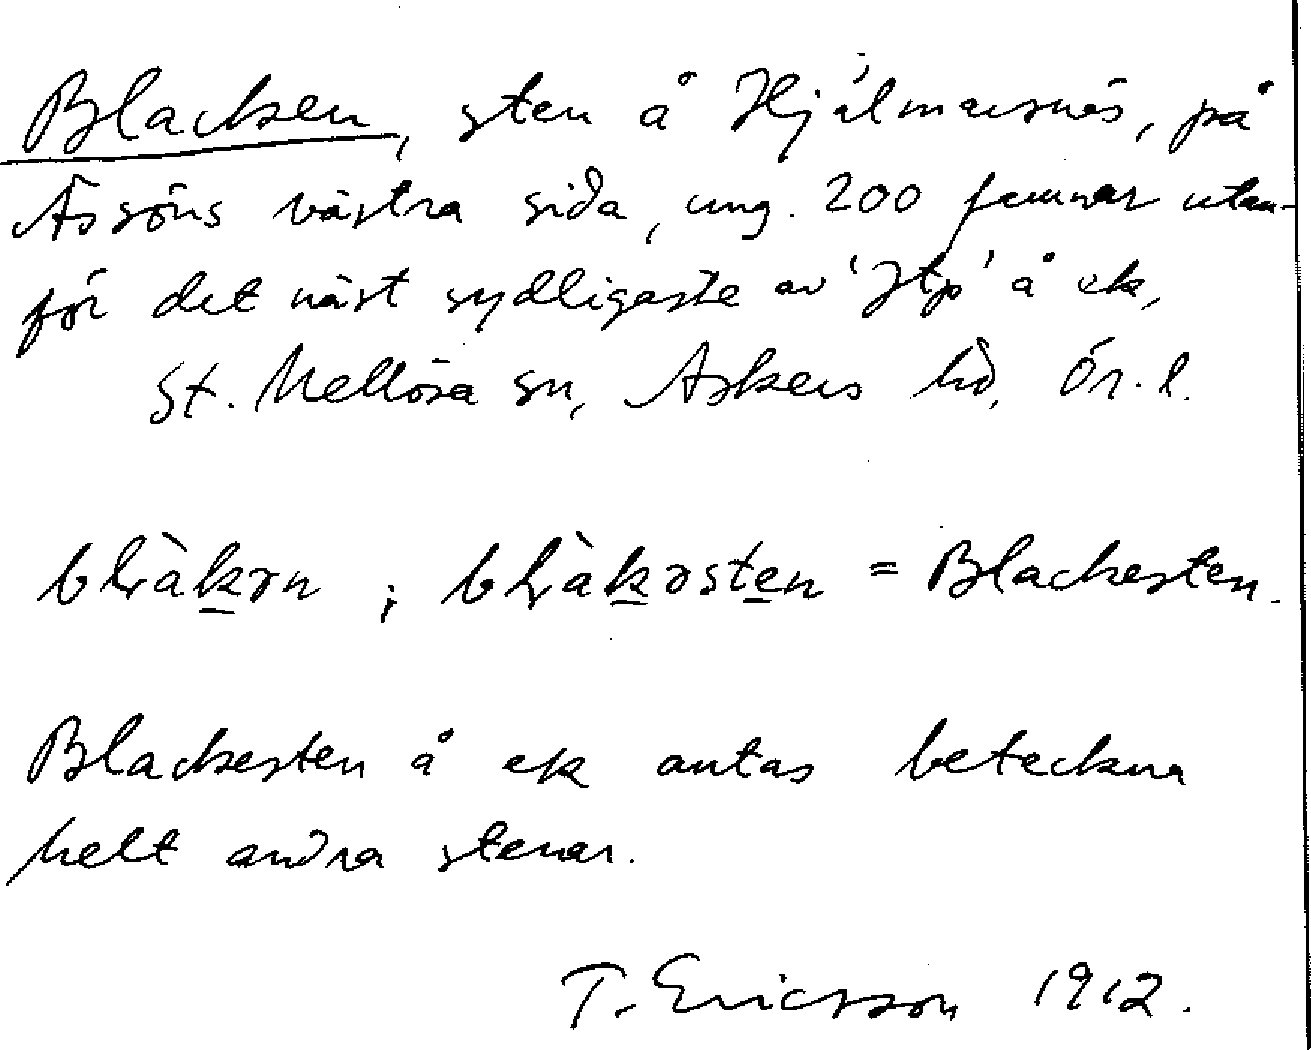 Blacken, sten å Hjälmarsnäs, på
Äsöns västra sida, ung. 200 famnar utan-
för det näst sydligaste av 'Htp' å ek,
St. Mellösa sn, Askers hd, Ör. l.
blàkən ; blàkəsten = Blackesten.
Blackesten å ek antas beteckna
helt andra stenar.
T. Ericsson 1912.